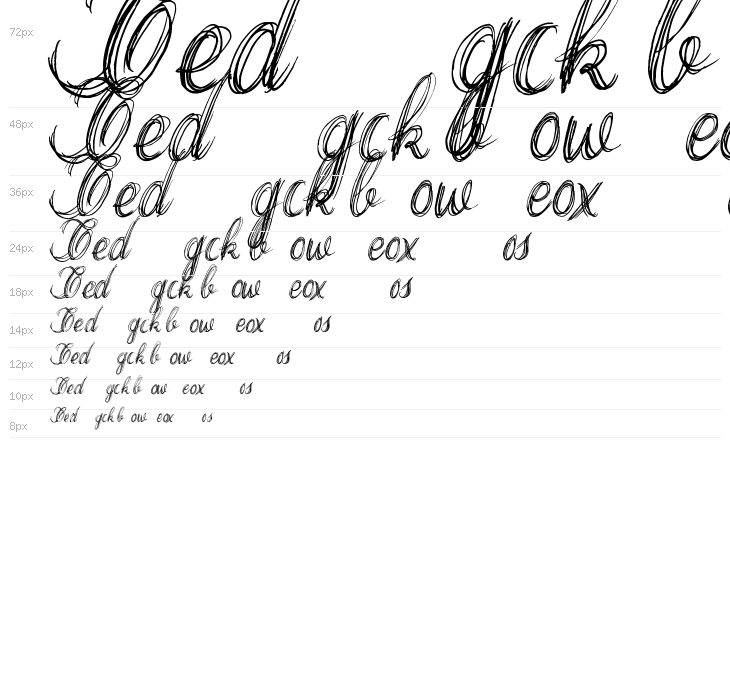 72px Ded gck b
48px Ded gck b ow
36px Ded gck b ow eox
24px Ded gck b ow eox os
18px Ded gck b ow eox os
14px Ded gck b ow eox os
12px Ded gck b ow eox os
10px Ded gck b ow eox os
8px Ded gck b ow eox os